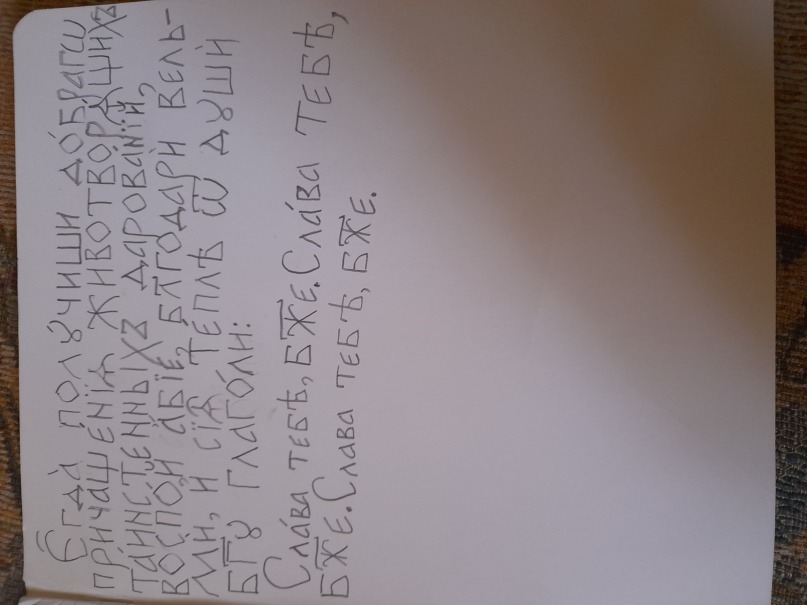 Єгда̀ полꙋчиши до́брагѡ
причаще́нїѧ животворѧ́щихъ
таи́нственныхъ дарова́нїй,
воспо́й а҆́бїе, бл҃годарѝ вель-
мѝ, и҆ сїѧ̑ те́плѣ ѿ дꙋшѝ
бг҃ꙋ глаго́ли:
Сла́ва тебѣ̀, бж҃е. Сла́ва тебѣ̀,
бж҃е. Слава тебѣ̀, бж҃е.